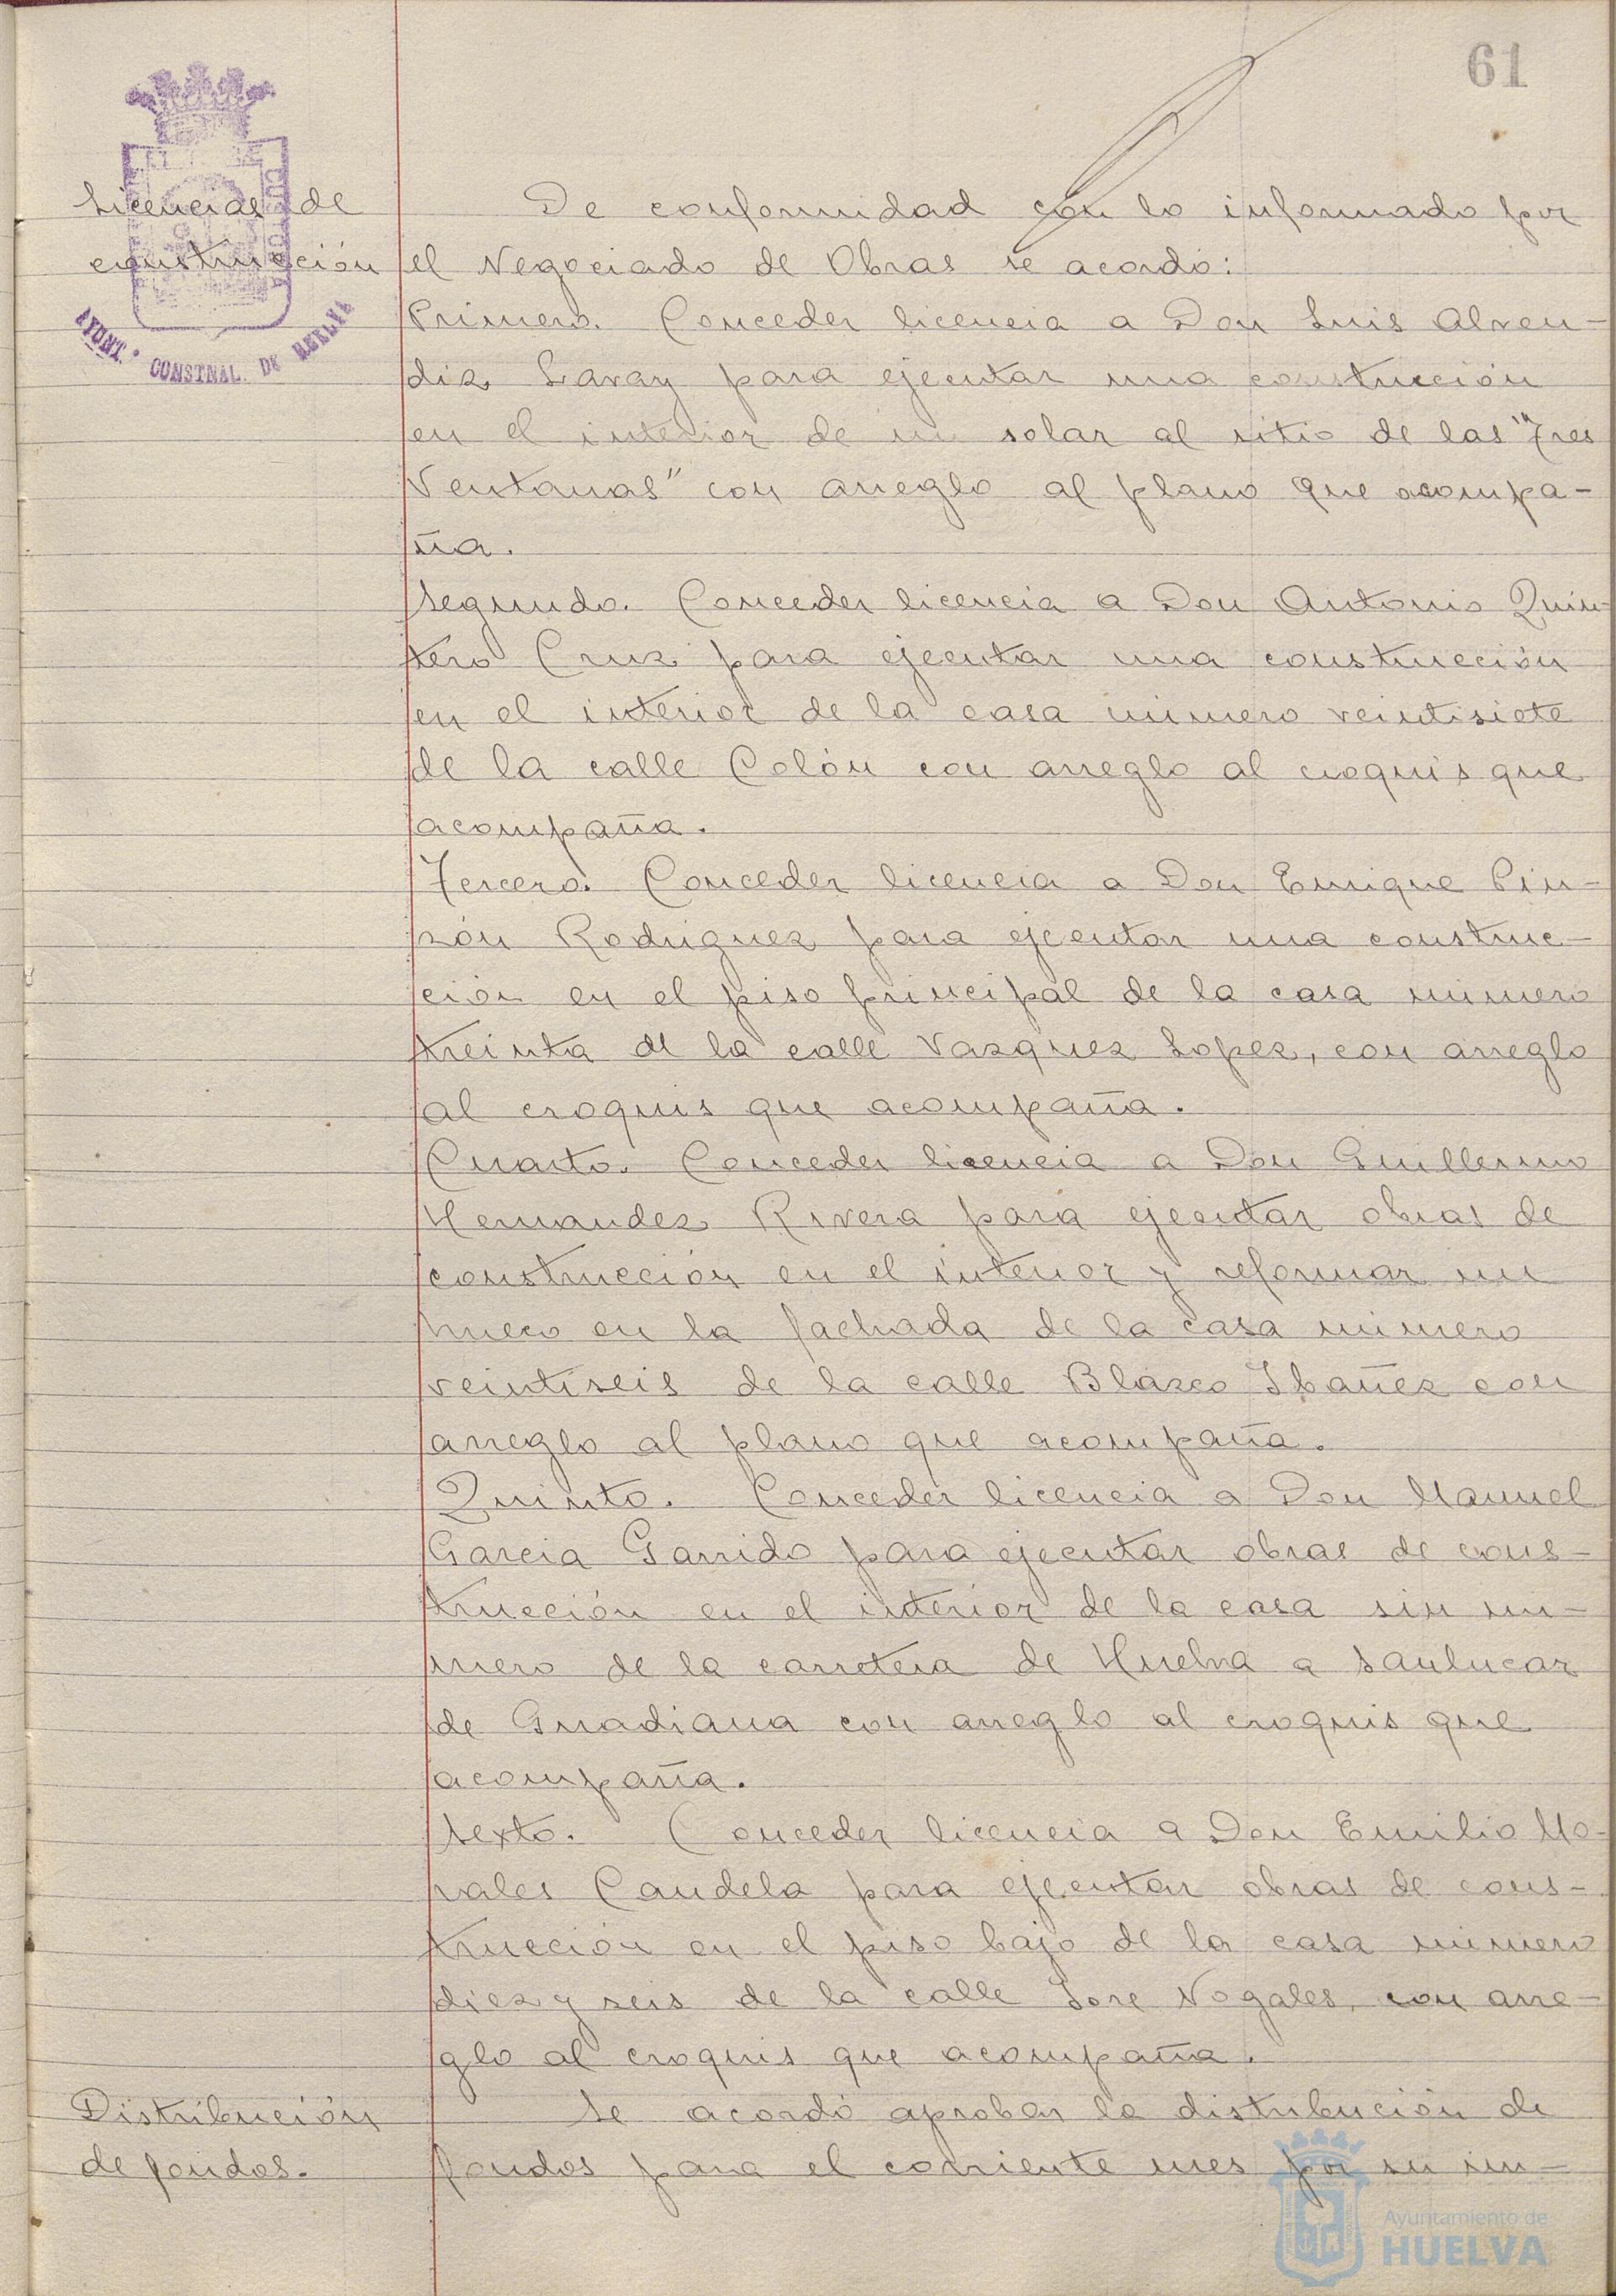 61
Licencias de
construcción
AYUNT. CONSTNAL. DE HUELVA
De conformidad con lo informado por
el Negociado de Obras se acordó:
Primero. Conceder licencia a Don Luis Alven-
diz Garay para ejecutar una construcción
en el interior de un solar al sitio de las "Tres
Ventanas" con arreglo al plano que acompa-
ña.
Segundo. Conceder licencia a Don Antonio Quin-
tero Cruz para ejecutar una construcción
en el interior de la casa número veintisiete
de la calle Colón con arreglo al croquis que
acompaña.
Tercero. Conceder licencia a Don Enrique Pin-
zón Rodriguez para ejecutar una construc-
ción en el piso principal de la casa número
treinta de la calle Vazquez Lopez, con arreglo
al croquis que acompaña.
Cuarto. Conceder licencia a Don Guillermo
Hernandez Rivera para ejecutar obras de
construcción en el interior y reformar un
hueco en la fachada de la casa número
veintiseis de la calle Blazco Ibañez con
arreglo al plano que acompaña.
Quinto. Conceder licencia a Don Manuel
Garcia Garrido para ejecutar obras de cons-
trucción en el interior de la casa sin nú-
mero de la carretera de Huelva a Sanlucar
de Guadiana con arreglo al croquis que
acompaña.
Sexto. Conceder licencia a Don Emilio Mo-
rales Candela para ejecutar obras de cons-
trucción en el piso bajo de la casa número
diez y seis de la calle Jose Nogales, con arre-
glo al croquis que acompaña.
Distribución
de fondos.
Se acordó aprobar la distribución de
fondos para el corriente mes por su im-
Ayuntamiento de
HUELVA